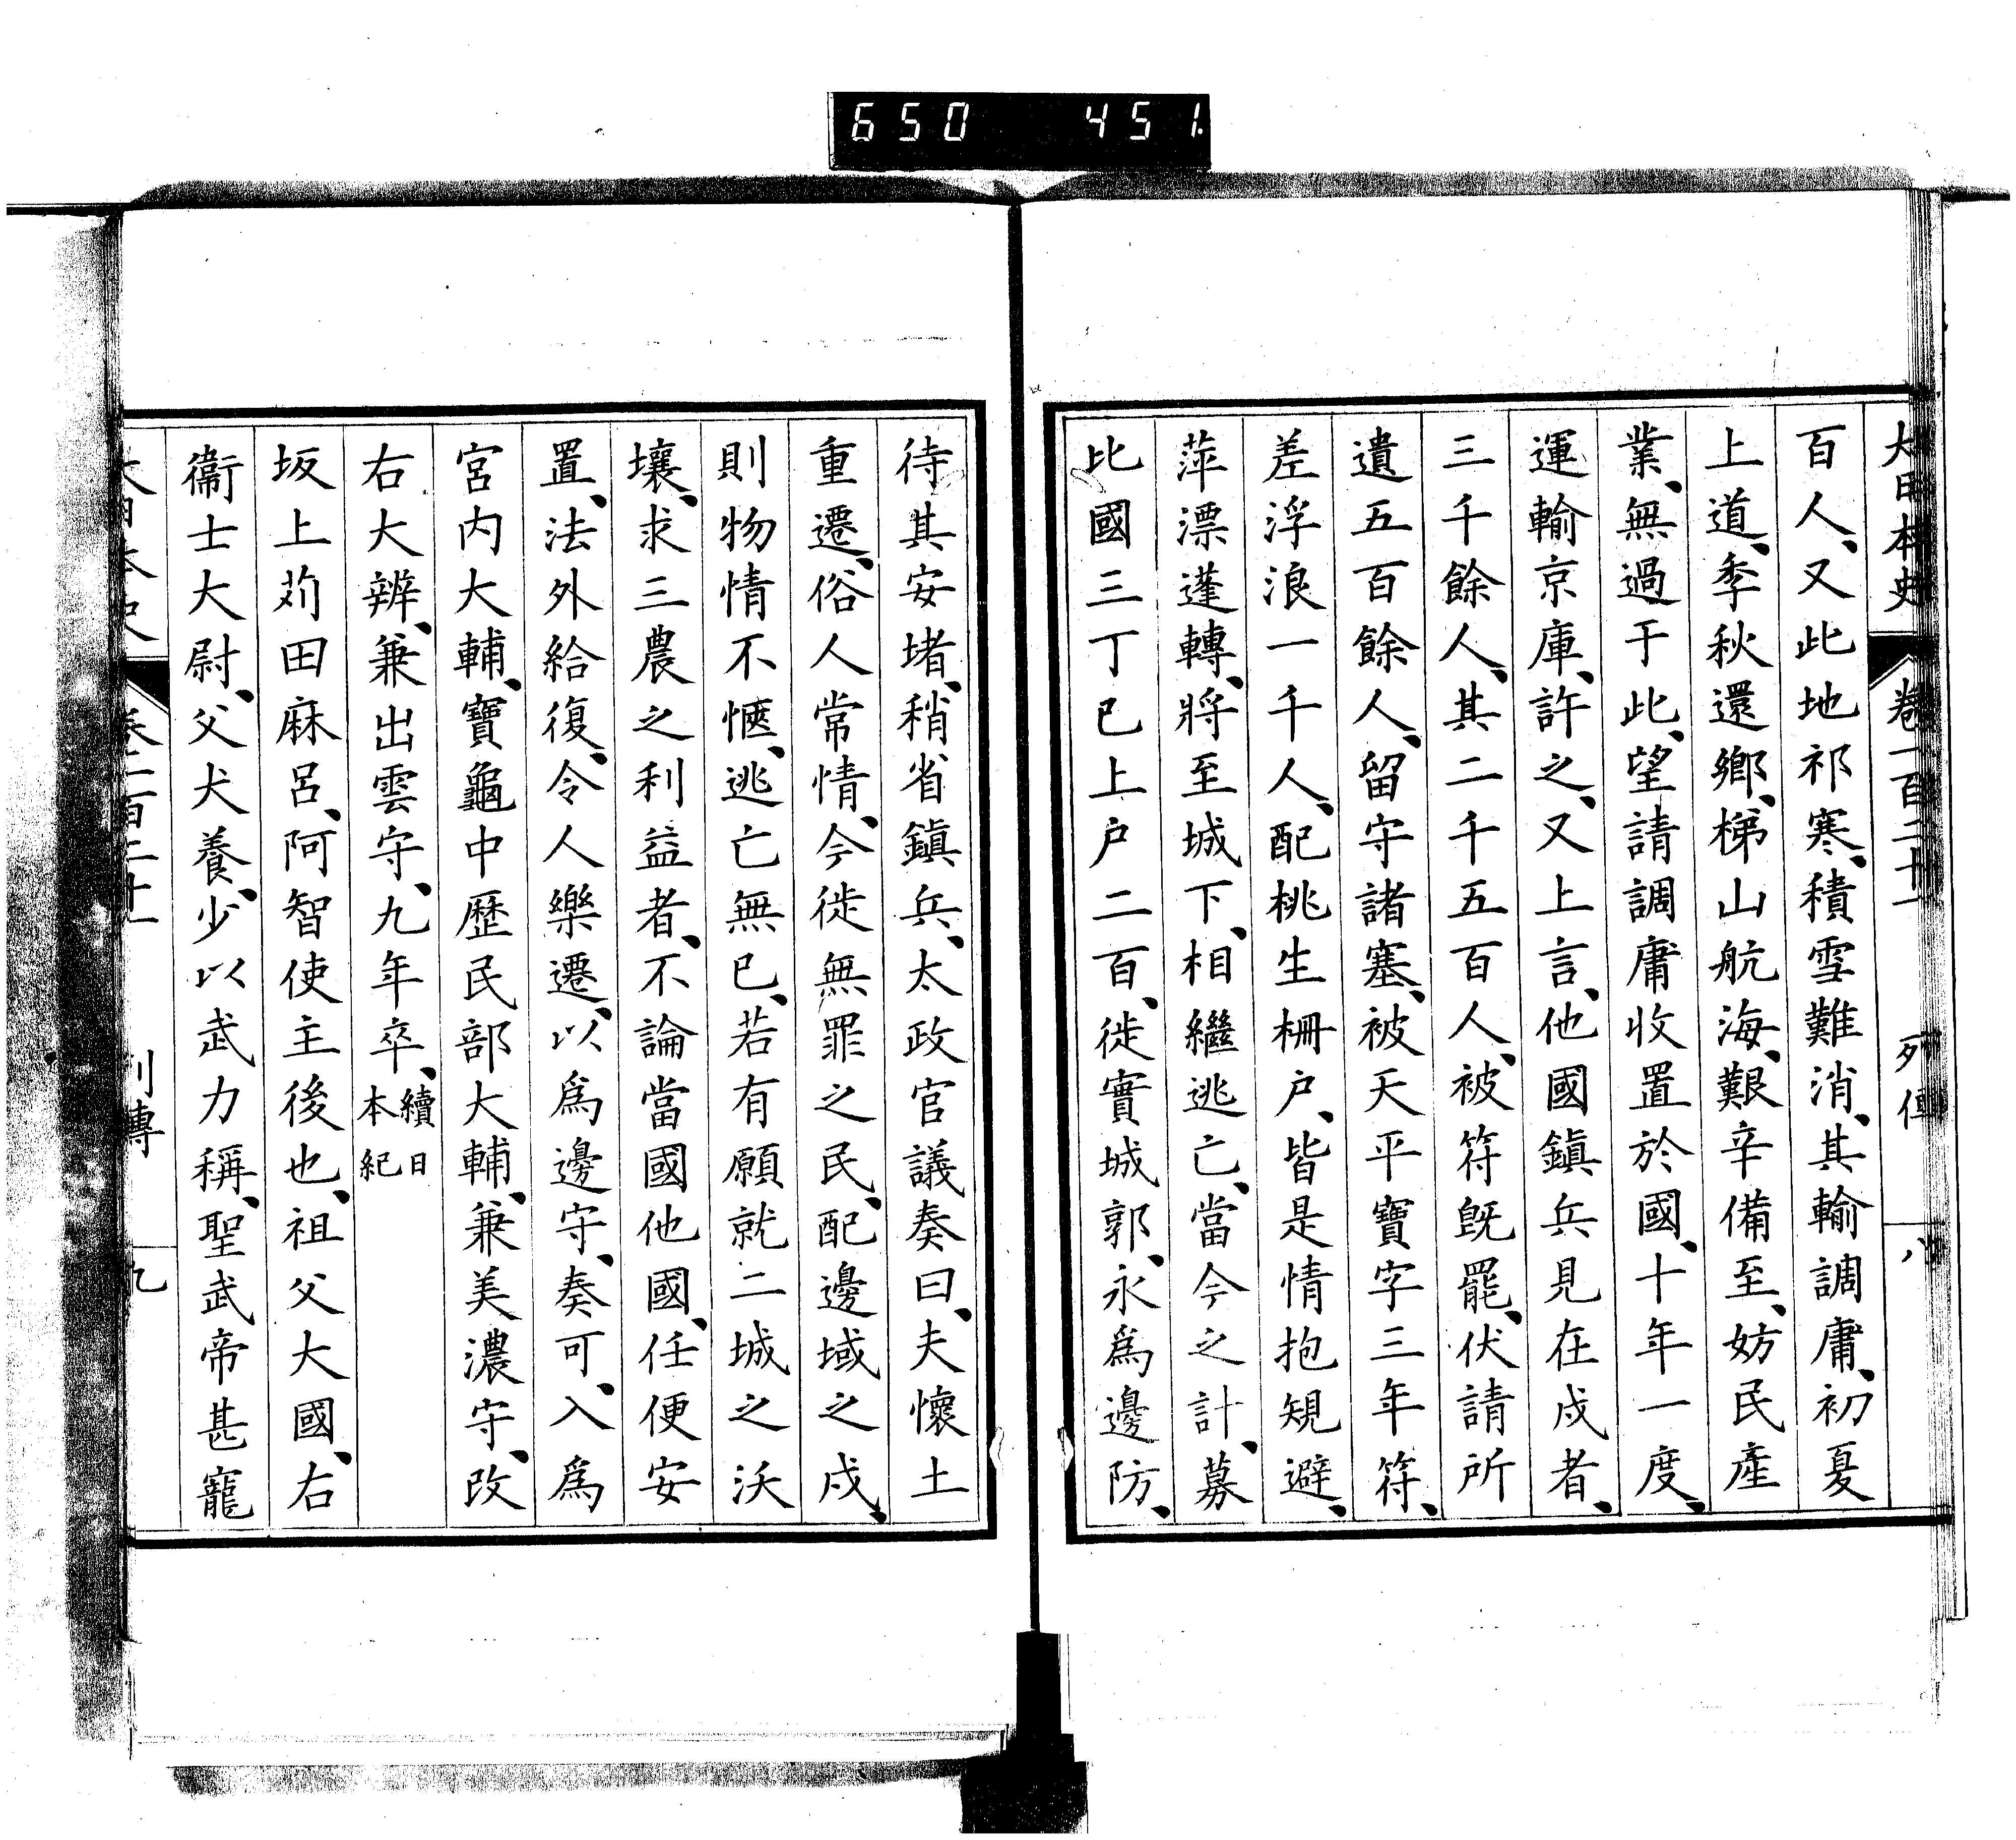 650 451
大日本史 卷一百二十一 列傳 八
百人、又此地祁寒、積雪難消、其輸調庸、初夏
上道、季秋還鄉、梯山航海、艱辛備至、妨民產
業、無過于此、望請調庸收置於國、十年一度、
運輸京庫、許之、又上言、他國鎮兵見在戍者、
三千餘人、其二千五百人、被符既罷、伏請所
遺五百餘人、留守諸塞、被天平寶字三年符、
差浮浪一千人、配桃生柵户、皆是情抱規避、
萍漂蓬轉、將至城下、相繼逃亡、當今之計、募
比國三丁已上户二百、徙實城郭、永爲邊防、
待其安堵、稍省鎮兵、太政官議奏曰、夫懷土
重遷、俗人常情、今徙無罪之民、配邊域之戍、
則物情不愜、逃亡無已、若有願就二城之沃
壤、求三農之利益者、不論當國他國、任便安
置、法外給復、令人樂遷、以爲邊守、奏可、入爲
宮内大輔、寶龜中歷民部大輔、兼美濃守、改
右大辨、兼出雲守、九年卒、續日本紀
坂上苅田麻呂、阿智使主後也、祖父大國、右
衞士大尉、父犬養、少以武力稱、聖武帝甚寵
大日本史 卷一百二十一 列傳 九